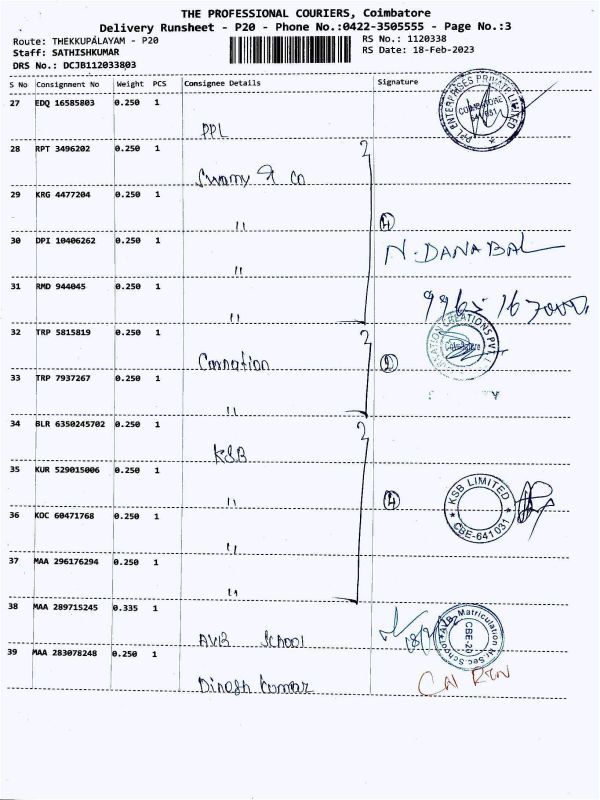 THE PROFESSIONAL COURIERS, Coimbatore
Delivery Runsheet - P20 - Phone No.:0422-3505555 - Page No.:3
Route: THEKKUPALAYAM - P20
RS No.: 1120338
Staff: SATHISHKUMAR
RS Date: 18-Feb-2023
DRS No.: DCJB112033803
S No Consignment No Weight PCS Consignee Details Signature
27 EDQ 16585803 0.250 1
PPL
PPL ENTERPRISES PRIVATE LIMITED
COIMBATORE
28 RPT 3496202 0.250 1
Swamy & Co
29 KRG 4477204 0.250 1
"
4
30 DPI 10406262 0.250 1
"
N. DANABAL
31 RMD 944045 0.250 1
"
32 TRP 5815819 0.250 1
Carnation
CREATIONS PVT
Coimbatore
33 TRP 7937267 0.250 1
"
2
34 BLR 6350245702 0.250 1
KSB
35 KUR 529015006 0.250 1
"
4
KSB LIMITED
CBE-641031
36 KOC 60471768 0.250 1
"
37 MAA 296176294 0.250 1
"
38 MAA 289715245 0.335 1
AVB School
AVB Matriculation Hr.Sec.School
CBE-20
39 MAA 283078248 0.250 1
Dinesh Kumar